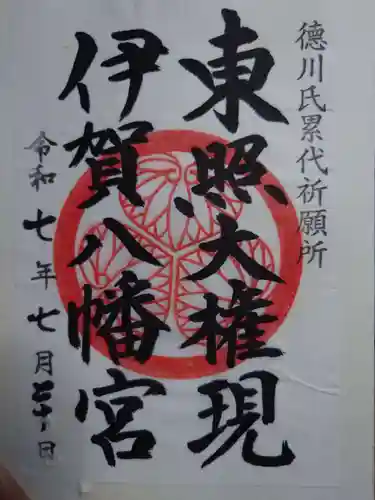 徳川氏累代祈願所
東照大権現
伊賀八幡宮
令和七年七月二十日